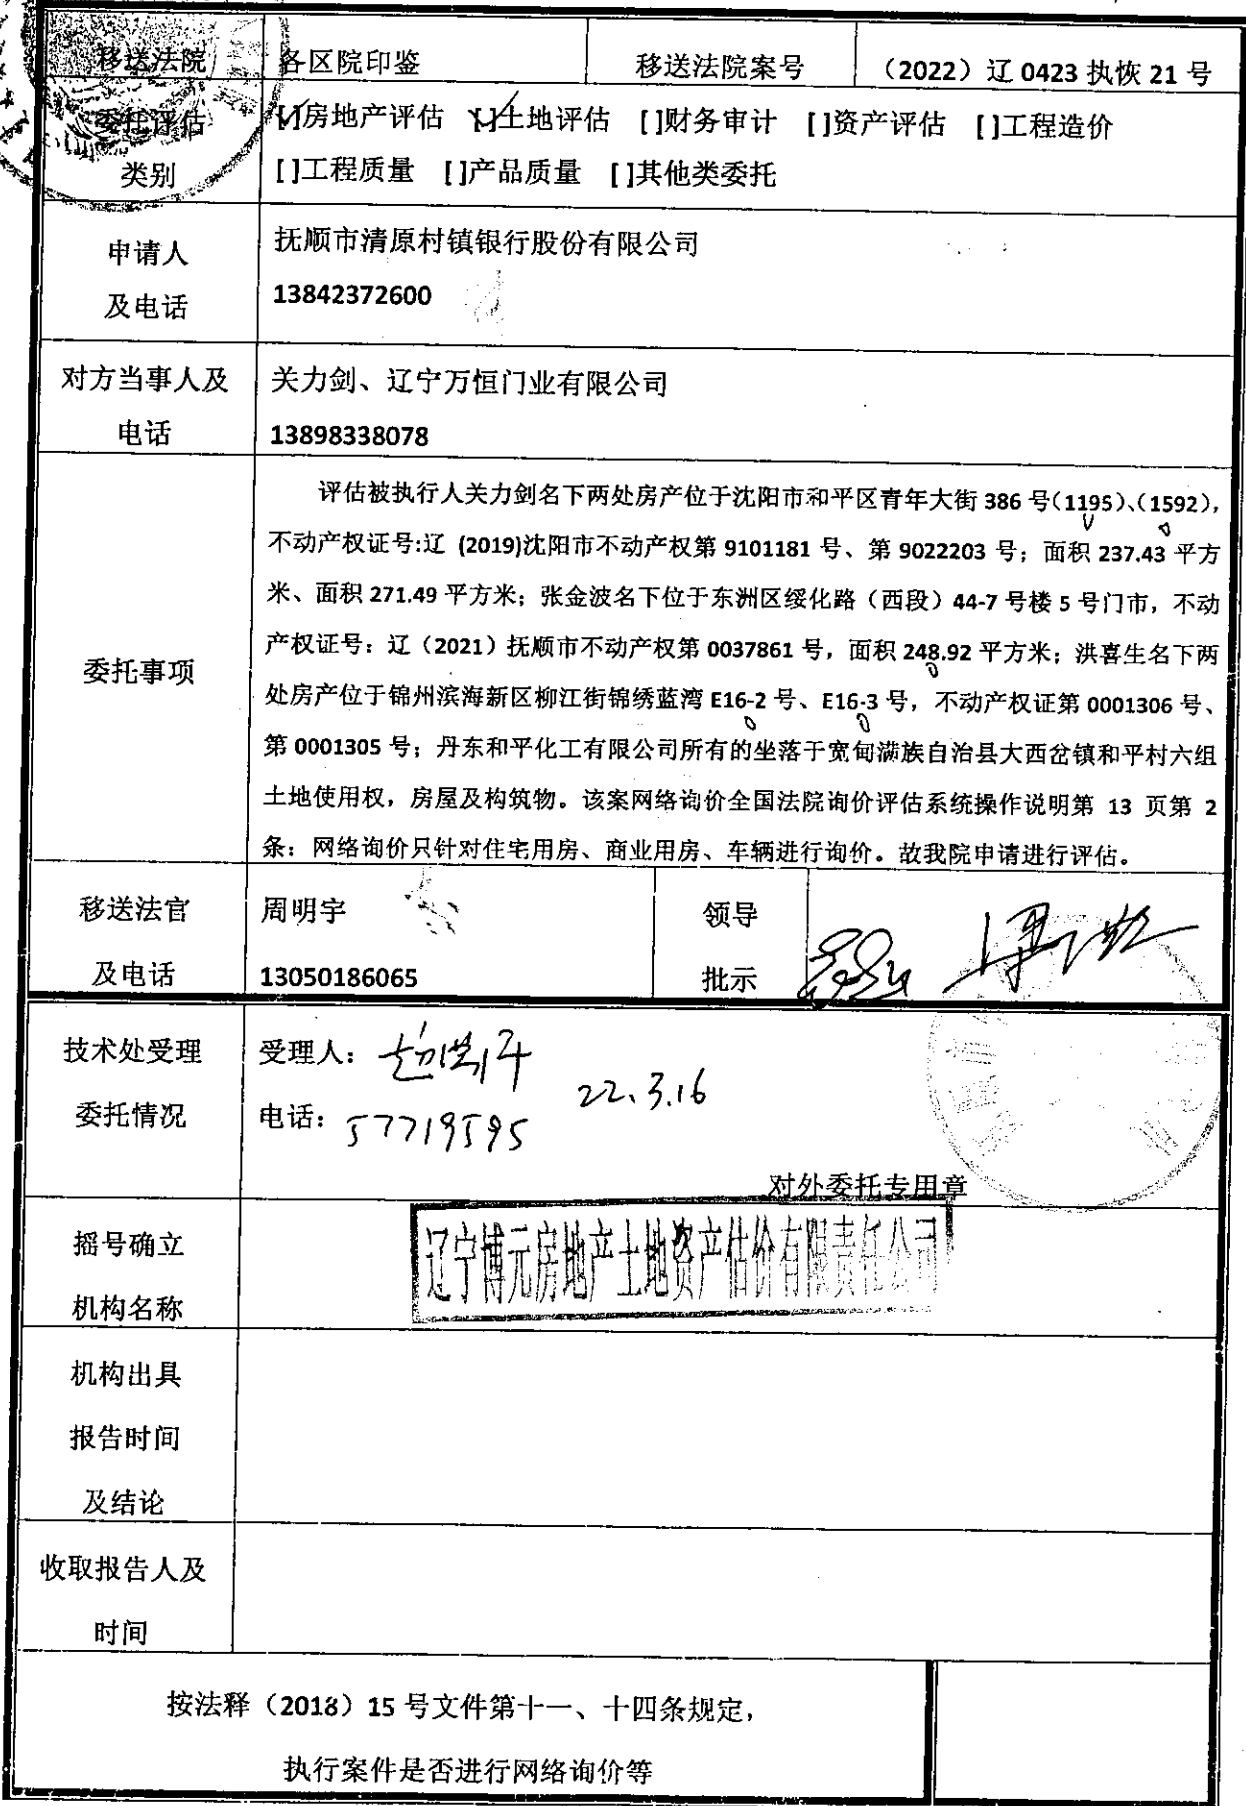 移送法院 各区院印鉴 移送法院案号 （2022）辽 0423 执恢 21 号
委托评估 [√]房地产评估 [√]土地评估 [ ]财务审计 [ ]资产评估 [ ]工程造价
类别 [ ]工程质量 [ ]产品质量 [ ]其他类委托
申请人 抚顺市清原村镇银行股份有限公司
及电话 13842372600
对方当事人及 关力剑、辽宁万恒门业有限公司
电话 13898338078
委托事项
评估被执行人关力剑名下两处房产位于沈阳市和平区青年大街 386 号（1195）、（1592），
不动产权证号:辽 (2019)沈阳市不动产权第 9101181 号、第 9022203 号；面积 237.43 平方
米、面积 271.49 平方米；张金波名下位于东洲区绥化路（西段）44-7 号楼 5 号门市，不动
产权证号：辽（2021）抚顺市不动产权第 0037861 号，面积 248.92 平方米；洪喜生名下两
处房产位于锦州滨海新区柳江街锦绣蓝湾 E16-2 号、E16-3 号，不动产权证第 0001306 号、
第 0001305 号；丹东和平化工有限公司所有的坐落于宽甸满族自治县大西岔镇和平村六组
土地使用权，房屋及构筑物。该案网络询价全国法院询价评估系统操作说明第 13 页第 2
条：网络询价只针对住宅用房、商业用房、车辆进行询价。故我院申请进行评估。
移送法官 周明宇 领导
及电话 13050186065 批示
技术处受理 受理人：
22.3.16
委托情况 电话：57719595
对外委托专用章
摇号确立 辽宁博元房地产土地资产估价有限责任公司
机构名称
机构出具
报告时间
及结论
收取报告人及
时间
按法释（2018）15 号文件第十一、十四条规定，
执行案件是否进行网络询价等